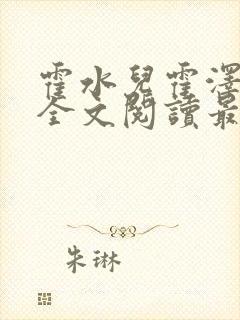 霍水兒霍澤
全文閱讀最
朱琳